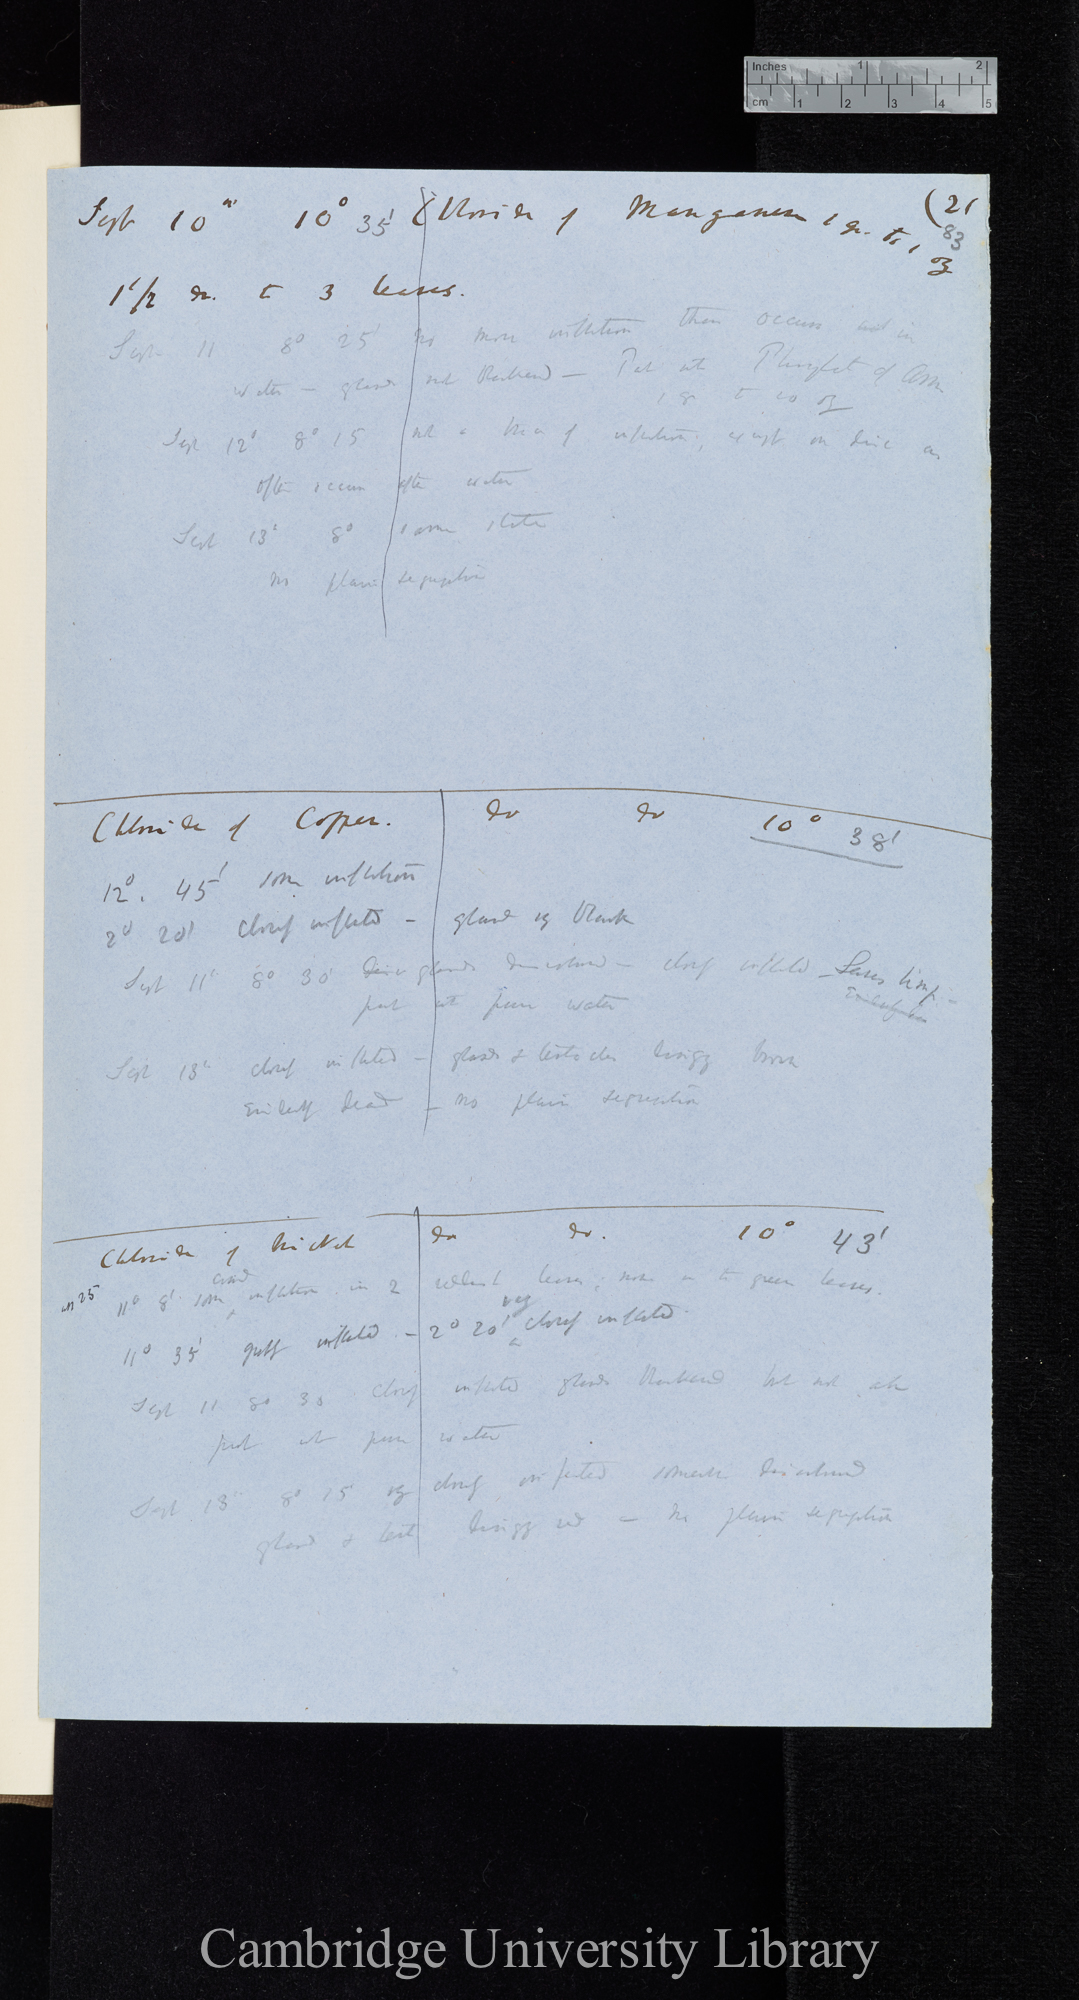 Inches 1 2
cm 1 2 3 4 5
Sept 10th 10° 35' Chloride of Manganese 1 gr. to 1 oz
(21
83
1 1/2 dr. to 3 leaves.
Sept 11 8° 25' no more inflection than occurs in
water — glands not blackened — Put into Phosphate of Amm
1 gr to 20 oz
Sept 12° 8° 15 not a trace of inflection, except on disc as
often occurs after water
Sept 13' 8° same state
no plain segregation
Chloride of Copper. do do 10° 38'
12°. 45' some inflection
2° 20' closely inflected — glands vy black
Sept 11' 8° 30' Disc glands discoloured — closely inflected — Leaves limp —
put into pure water
Sept 13' closely inflected — glands & tentacles dingy brown
Evidently dead — no plain segregation
Chloride of Nickel do do. 10° 43'
in 25'
11° 8' some inflection in 2 reddish leaves; none in the green leaves.
11° 35' greatly inflected — 2° 20' very closely inflected
Sept 11 8° 30 closely inflected glands blackened but not all
put into pure water
Sept 13 8° 15 vy closely inflected somewhat discoloured
glands & tent dingy red — no plain segregation
Cambridge University Library